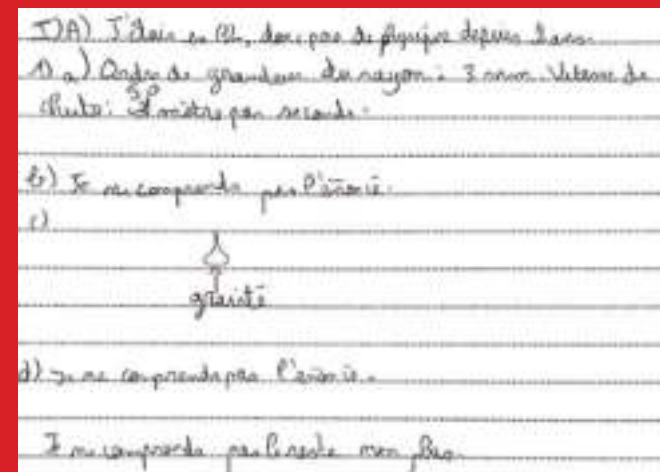 I)A) J'étais en BL, donc pas de physique depuis 2 ans.
1) a) Ordre de grandeur du rayon : 3 mm. Vitesse de
chute : mètre par seconde.
b) Je ne comprends pas l'énoncé.
c)
gravité
d) Je ne comprends pas l'énoncé.
Je ne comprends pas le reste non plus.